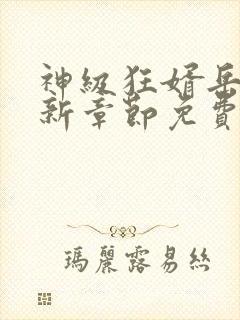 神級狂婿岳
新章節免費
瑪麗露易絲